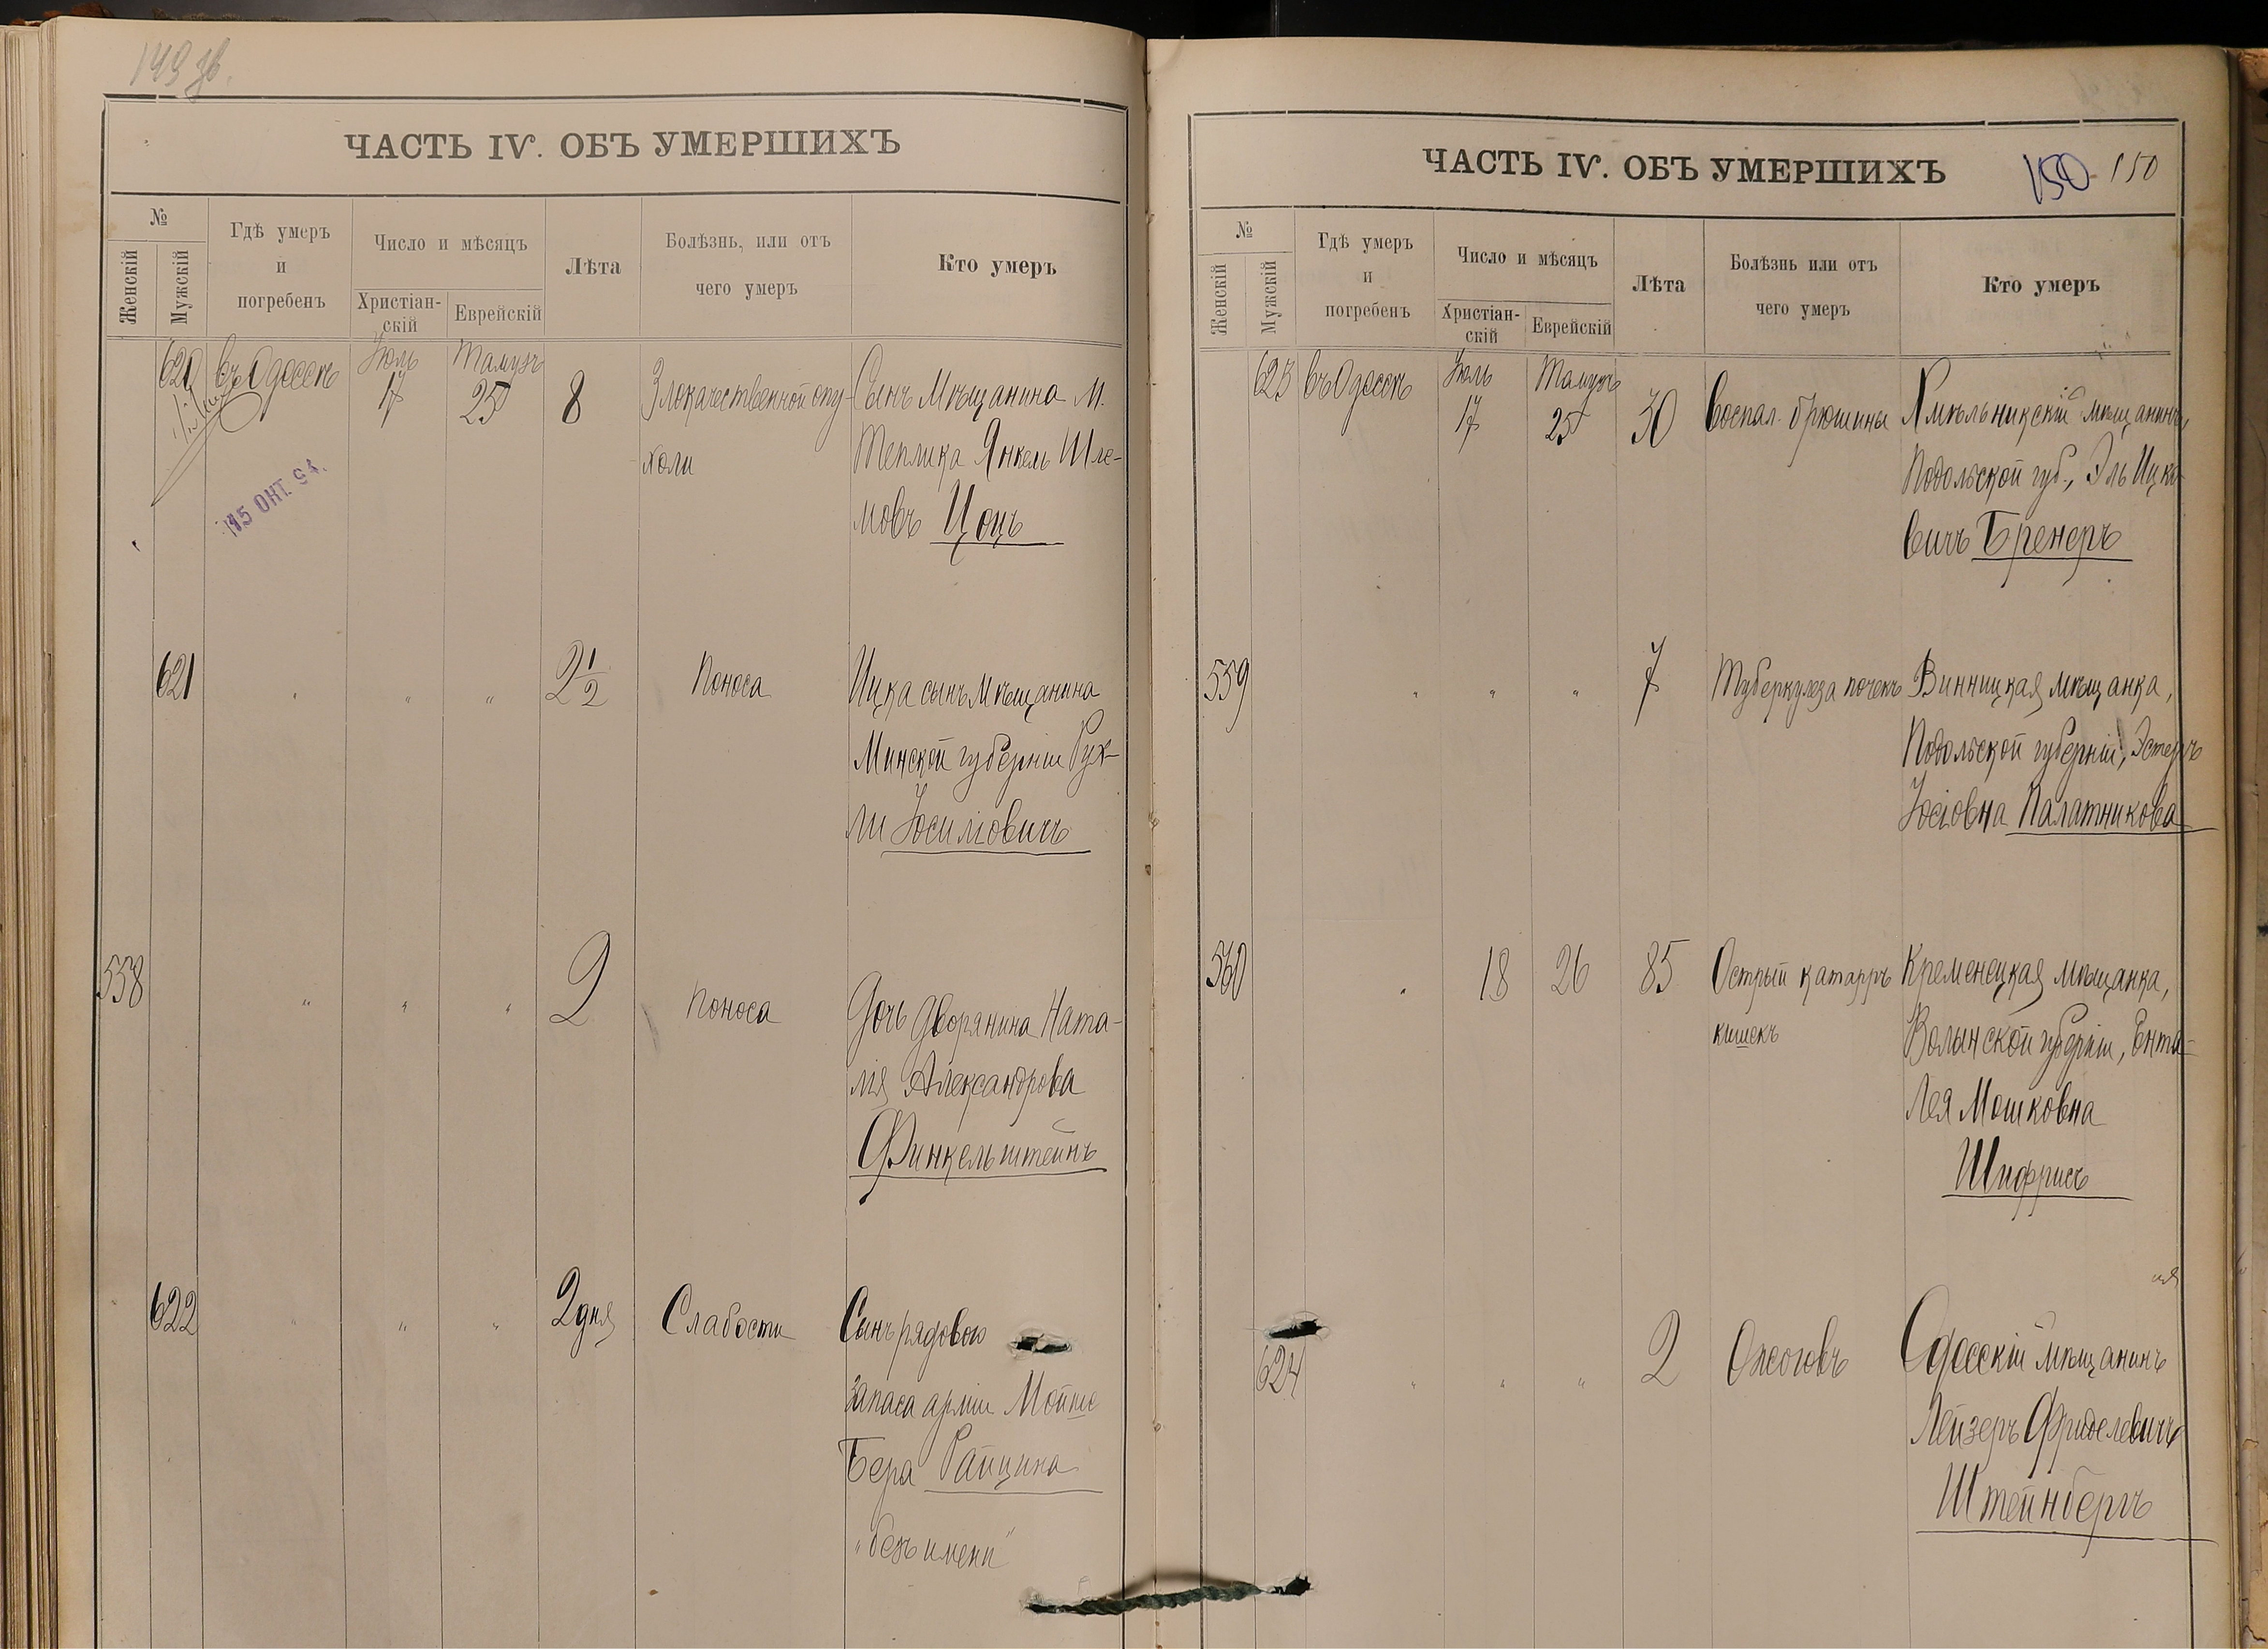 149 об.
ЧАСТЬ IV. ОБЪ УМЕРШИХЪ
№
Женскій
Мужскій
Гдѣ умеръ
и
погребенъ
Число и мѣсяцъ
Христіан-
скій
Еврейскій
Лѣта
Болѣзнь, или отъ
чего умеръ
Кто умеръ
620 въ Одессѣ Іюль 17 Тамузъ 25 8 Злокачественной опу- Сынъ Мѣщанина М.
холи Теплика Янкель Шле-
мовъ Цоцъ
15 ОКТ. 94.
621 " " " 2 1/2 Поноса Ицка сынъ Мѣщанина
Минской губерніи Рух-
ли Іосиліовичъ
558 " " " 2 Поноса Дочь Дворянина Ната-
лія Александрова
Финкельштейнъ
622 " " " 2 дня Слабости Сынъ рядового
запаса арміи Мойше
Бера Райцина
"безъ имени"
ЧАСТЬ IV. ОБЪ УМЕРШИХЪ
150 150
№
Женскій
Мужскій
Гдѣ умеръ
и
погребенъ
Число и мѣсяцъ
Христіан-
скій
Еврейскій
Лѣта
Болѣзнь или отъ
чего умеръ
Кто умеръ
623 въ Одессѣ Іюль 17 Тамузъ 25 30 Воспал. брюшины Хмѣльникскій мѣщанинъ,
Подольской губ., Эль Ицко-
вичъ Бренеръ
559 " " " 7 Туберкулеза почекъ Винницкая мѣщанка,
Подольской губерніи, Эстеръ
Іосіовна Палатникова
560 " 18 26 85 Острый катарръ Кременецкая мѣщанка,
кишекъ Волынской губерніи, Ента-
Лея Мошковна
Шифрисъ
624 " " " 2 Ожоговъ Одесскій мѣщанинъ
Лейзеръ Фриделевичъ
Штейнбергъ